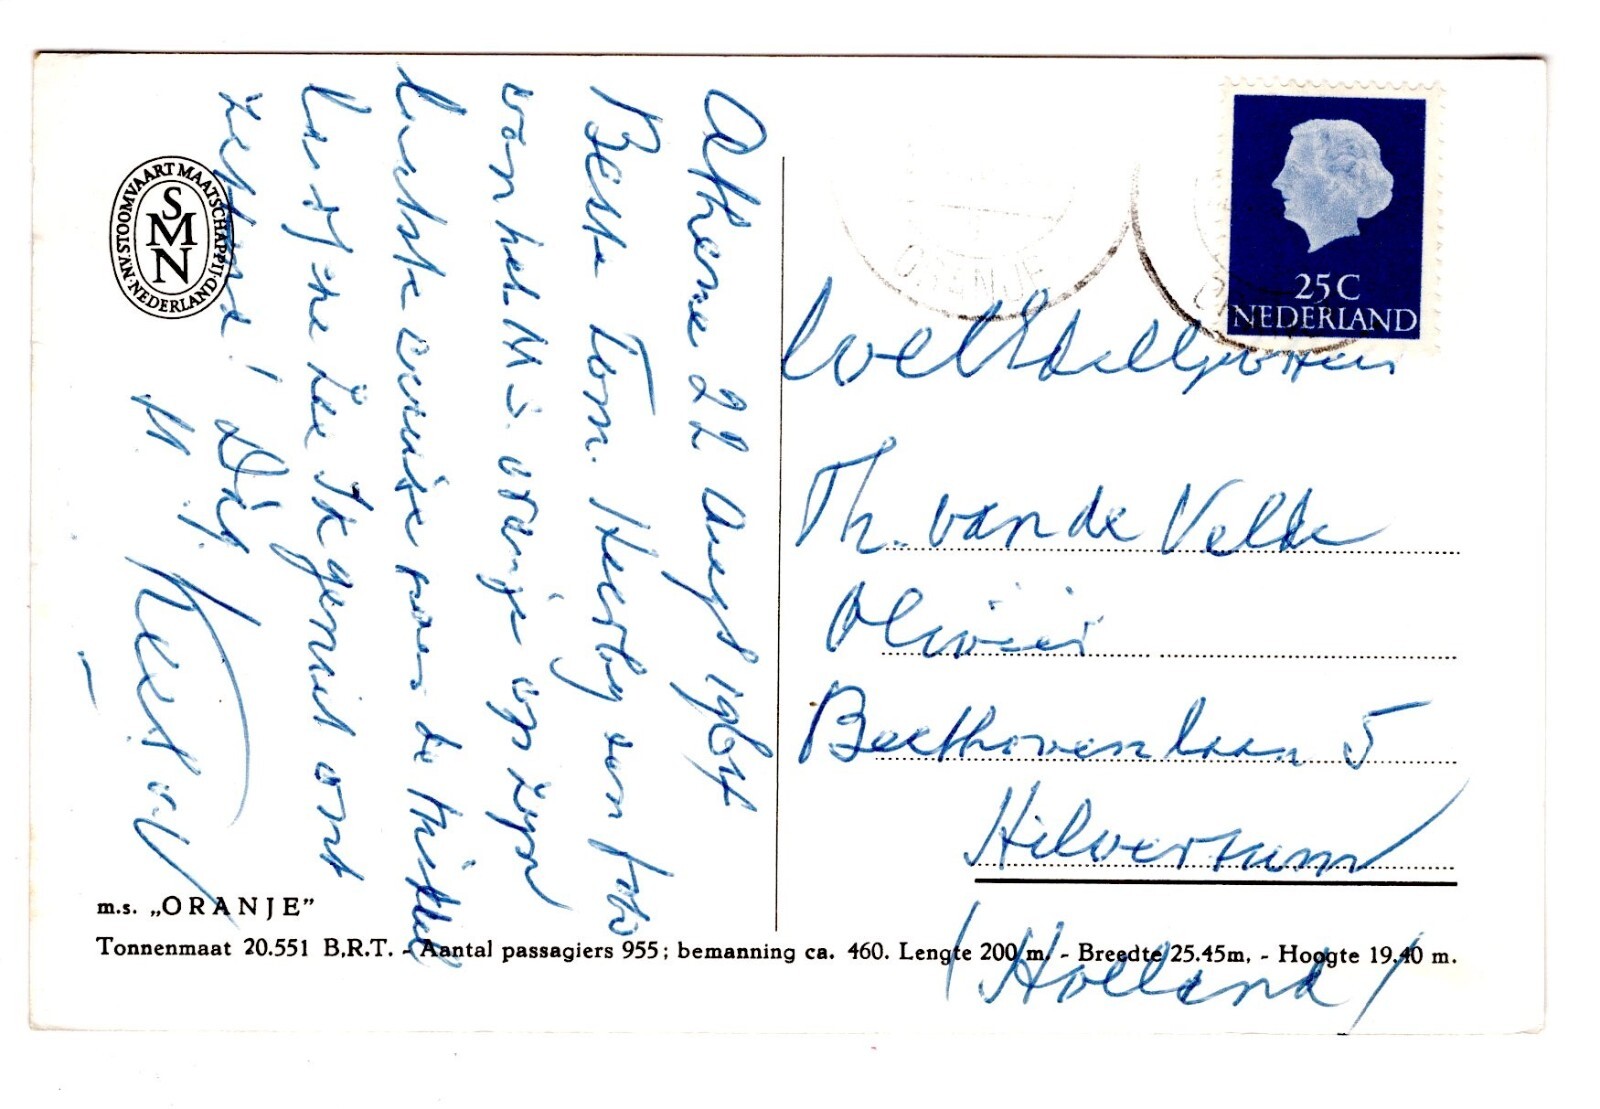 Athene 22 Aug 1964
Beste Tom. Hierbij een foto
van het M.S. Oranje op zijn
laatste cruise naar de Middel
landsche Zee Ik geniet ont
zettend! Dag.
M.
N.V. STOOMVAART MAATSCHAPPIJ NEDERLAND
SMN
ORANJE
25 C
NEDERLAND
Th. van de Velde
Olivier
Beethovenlaan 5
Hilversum
(Holland)
m.s. „ORANJE”
Tonnenmaat 20.551 B.R.T. - Aantal passagiers 955; bemanning ca. 460. Lengte 200 m. - Breedte 25.45m, - Hoogte 19.40 m.